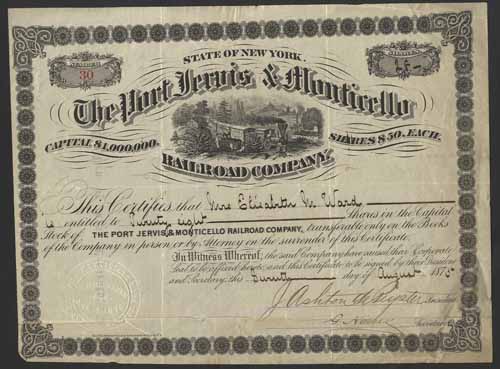 STATE OF NEW YORK.
NUMBER
30
SHARES
The Port Jervis & Monticello
CAPITAL $1,000,000.
SHARES $50. EACH.
RAILROAD COMPANY.
This Certifies that Mrs Elizabeth M. Ward
is entitled to Twenty eight Shares in the Capital
Stock of THE PORT JERVIS & MONTICELLO RAILROAD COMPANY, transferable only on the Books
of the Company in person or by Attorney on the surrender of this Certificate.
In Witness Whereof, the said Company have caused their Corporate
Seal to be affixed hereto, and this Certificate to be signed by their President
and Secretary, this Twenty day of August 1875
J. Ashton De Peyster President
Secretary